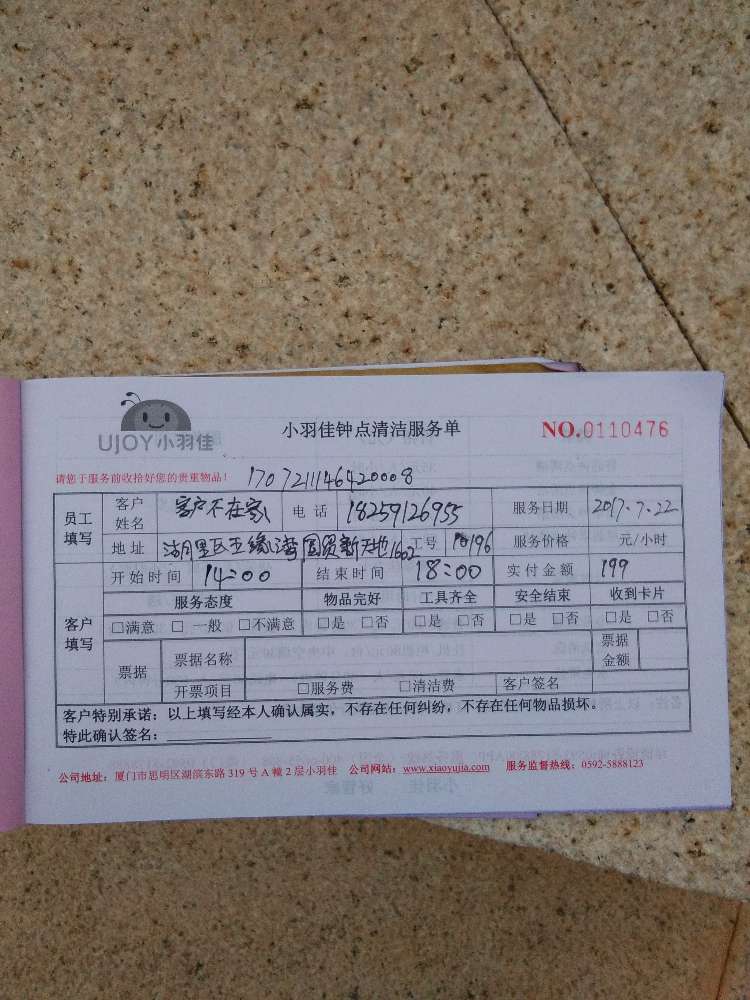 UJOY小羽佳
小羽佳钟点清洁服务单
NO.0110476
请您于服务前收拾好您的贵重物品！ 1707211146420008
员工填写 客户姓名 客户不在家 电话 18259126955 服务日期 2017.7.22
地址 湖里区五缘湾国贸新天地1602 工号 196 服务价格 元/小时
开始时间 14:00 结束时间 18:00 实付金额 199
客户填写 服务态度 物品完好 工具齐全 安全结束 收到卡片
□满意 □一般 □不满意 □是 □否 □是 □否 □是 □否 □是 □否
票据 票据名称 票据金额
开票项目 □服务费 □清洁费 客户签名
客户特别承诺：以上填写经本人确认属实，不存在任何纠纷，不存在任何物品损坏。
特此确认签名：
公司地址：厦门市思明区湖滨东路 319 号 A 幢 2 层小羽佳 公司网站：www.xiaoyujia.com 服务监督热线：0592-5888123